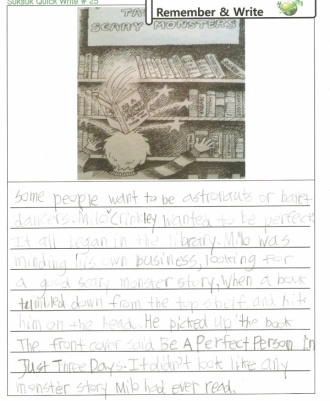 Suksuk Quick Write # 25
Remember & Write
SCARY MONSTERS
Some people want to be astronauts or banet
dancers. Milo Crinkley wanted to be perfect
It all began in the library. Milo was
minding his own business, looking for
a good scary monster story, When a book
tumbled down from the top shelf and hit
him on the head. He picked up the book
The front cover said Be A Perfect Person In
Just Three Days. It didn't look like any
monster story Milo had ever read.